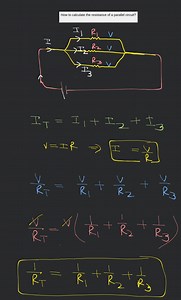 How to calculate the resistance of a parallel circuit?
I₁ R₁ V
I I₂ R₂ V
I₃ R₃ V
I_T = I₁ + I₂ + I₃
V = IR ⇒ I = V/R
V/R_T = V/R₁ + V/R₂ + V/R₃
V/R_T = V(1/R₁ + 1/R₂ + 1/R₃)
1/R_T = 1/R₁ + 1/R₂ + 1/R₃